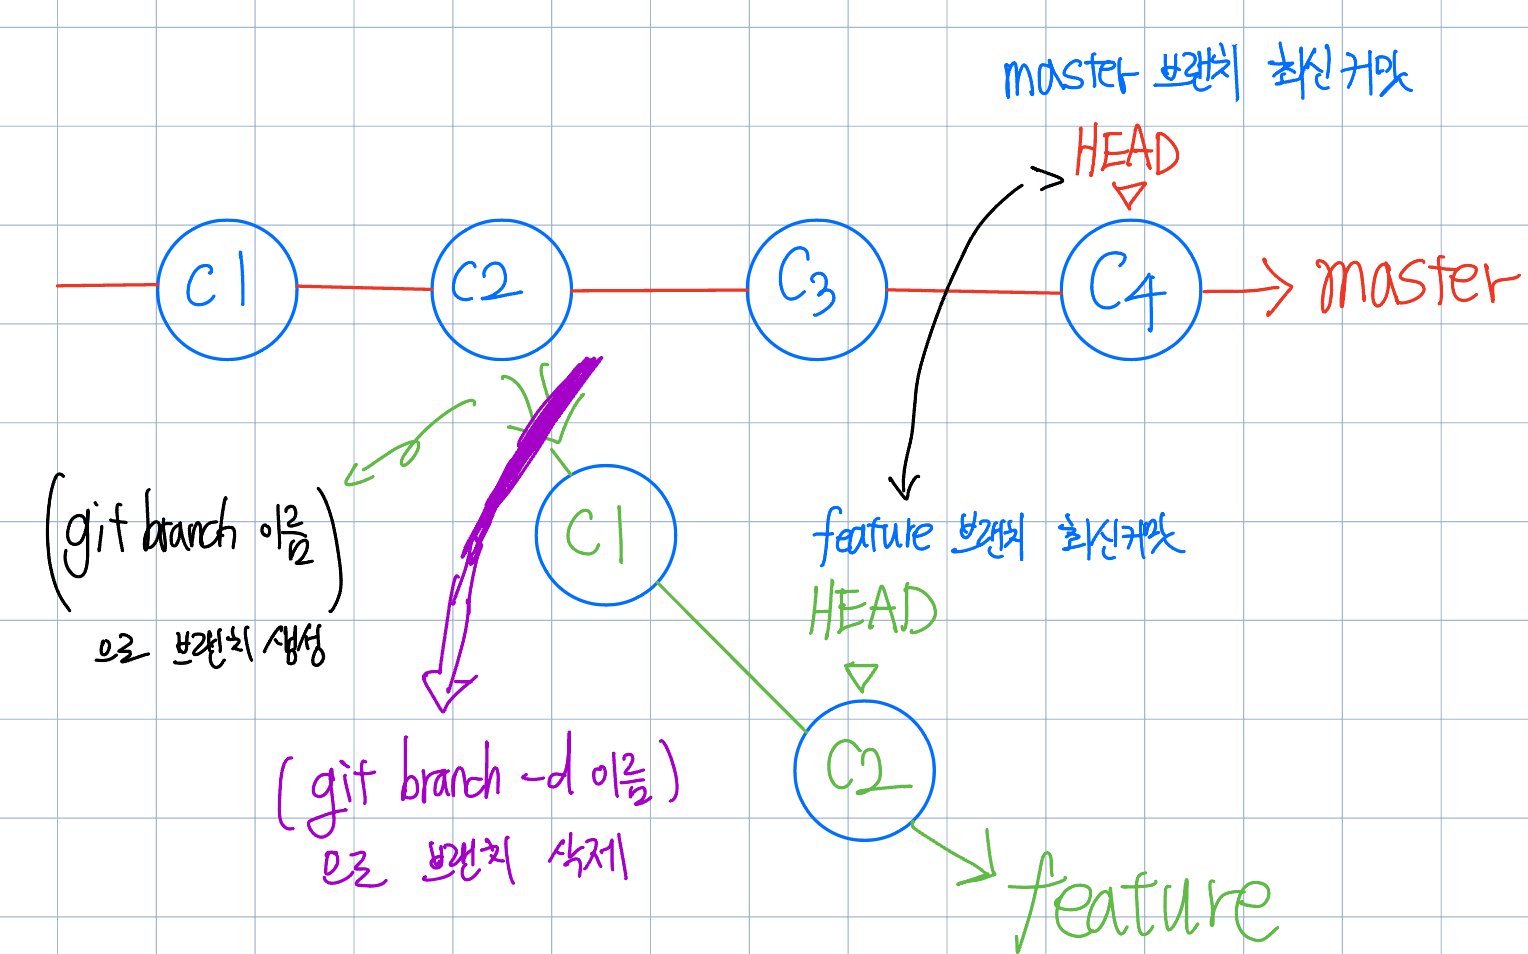 master 브랜치 최신커밋
HEAD
C1
C2
C3
C4
master
(git branch 이름)
으로 브랜치 생성
C1
feature 브랜치 최신커밋
HEAD
C2
(git branch -d 이름)
으로 브랜치 삭제
feature